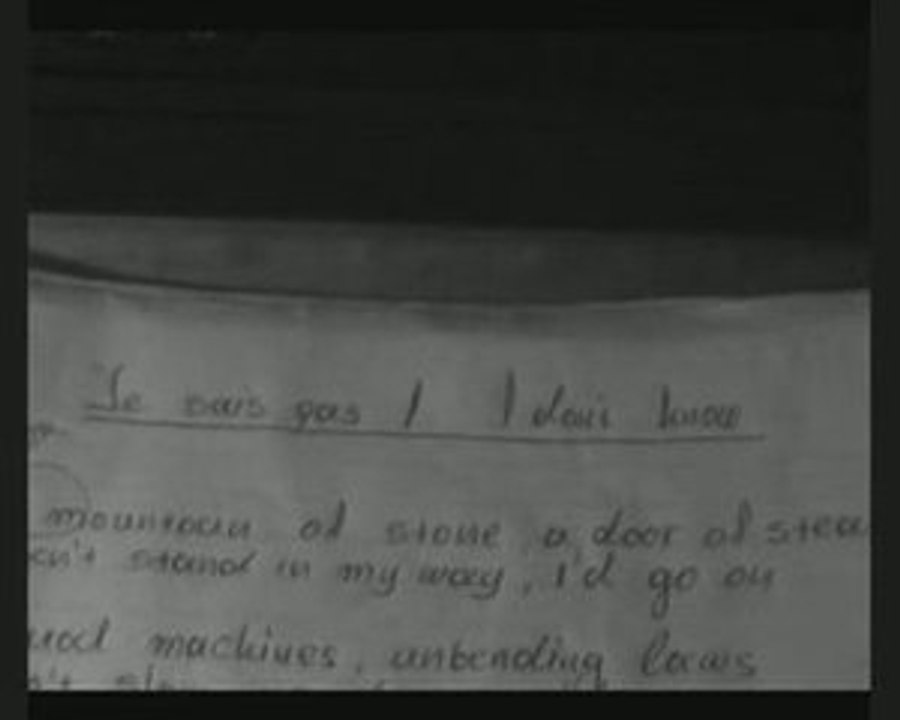 Je sais pas / I don't know
mountain of stone a door of steel
can't stand in my way, I'd go on
machines, unbending laws